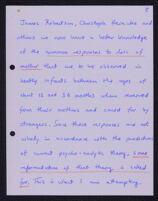 James Robertson, Christoph Heinicke and
others we now have a better knowledge
of the common responses to loss of
mother that are to be observed in
healthy infants between the ages of
about 12 and 36 months when removed
from their mothers and cared for by
strangers. Since those responses are not
wholly in accordance with the predictions
of current psycho-analytic theory, some
reformulation of that theory is called
for. This is what I am attempting.